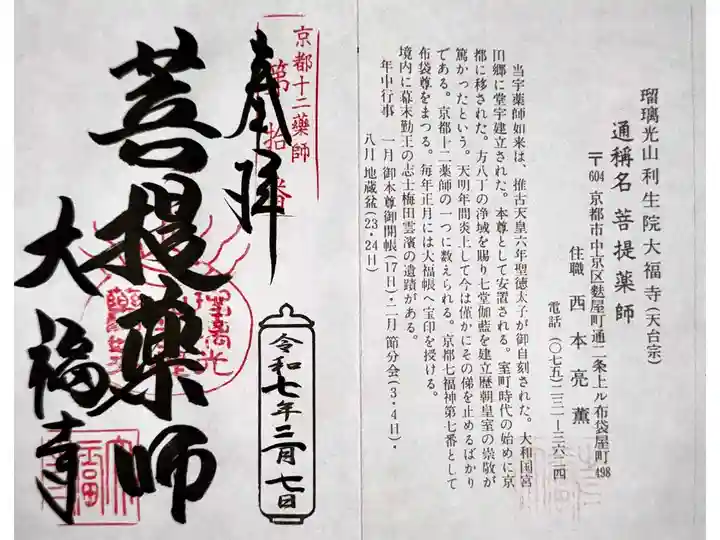 瑠璃光山利生院大福寺(天台宗)
通稱名 菩提薬師
〒604 京都市中京区麩屋町通二条上ル布袋屋町498
住職 西本亮薫
電話(〇七五)二三一―三六二四
当宇薬師如来は、推古天皇六年聖徳太子が御自刻された。大和国宮
田郷に堂宇建立された。本尊として安置される。室町時代の始めに京
都に移された。方八丁の浄域を賜り七堂伽藍を建立歴朝皇室の崇敬が
篤かったという。天明年間炎上して今は僅かにその俤を止めるばかり
である。京都十二薬師の一つに数えられる。京都七福神第七番として
布袋尊をまつる。毎年正月には大福帳へ宝印を授ける。
境内に幕末勤王の志士梅田雲濱の遺蹟がある。
年中行事 一月 御本尊御開帳(17日)・二月 節分会(3・4日)・
八月 地蔵盆(23・24日)
京都十二薬師
第拾番
奉拝
菩提薬師
大福寺
令和七年三月七日